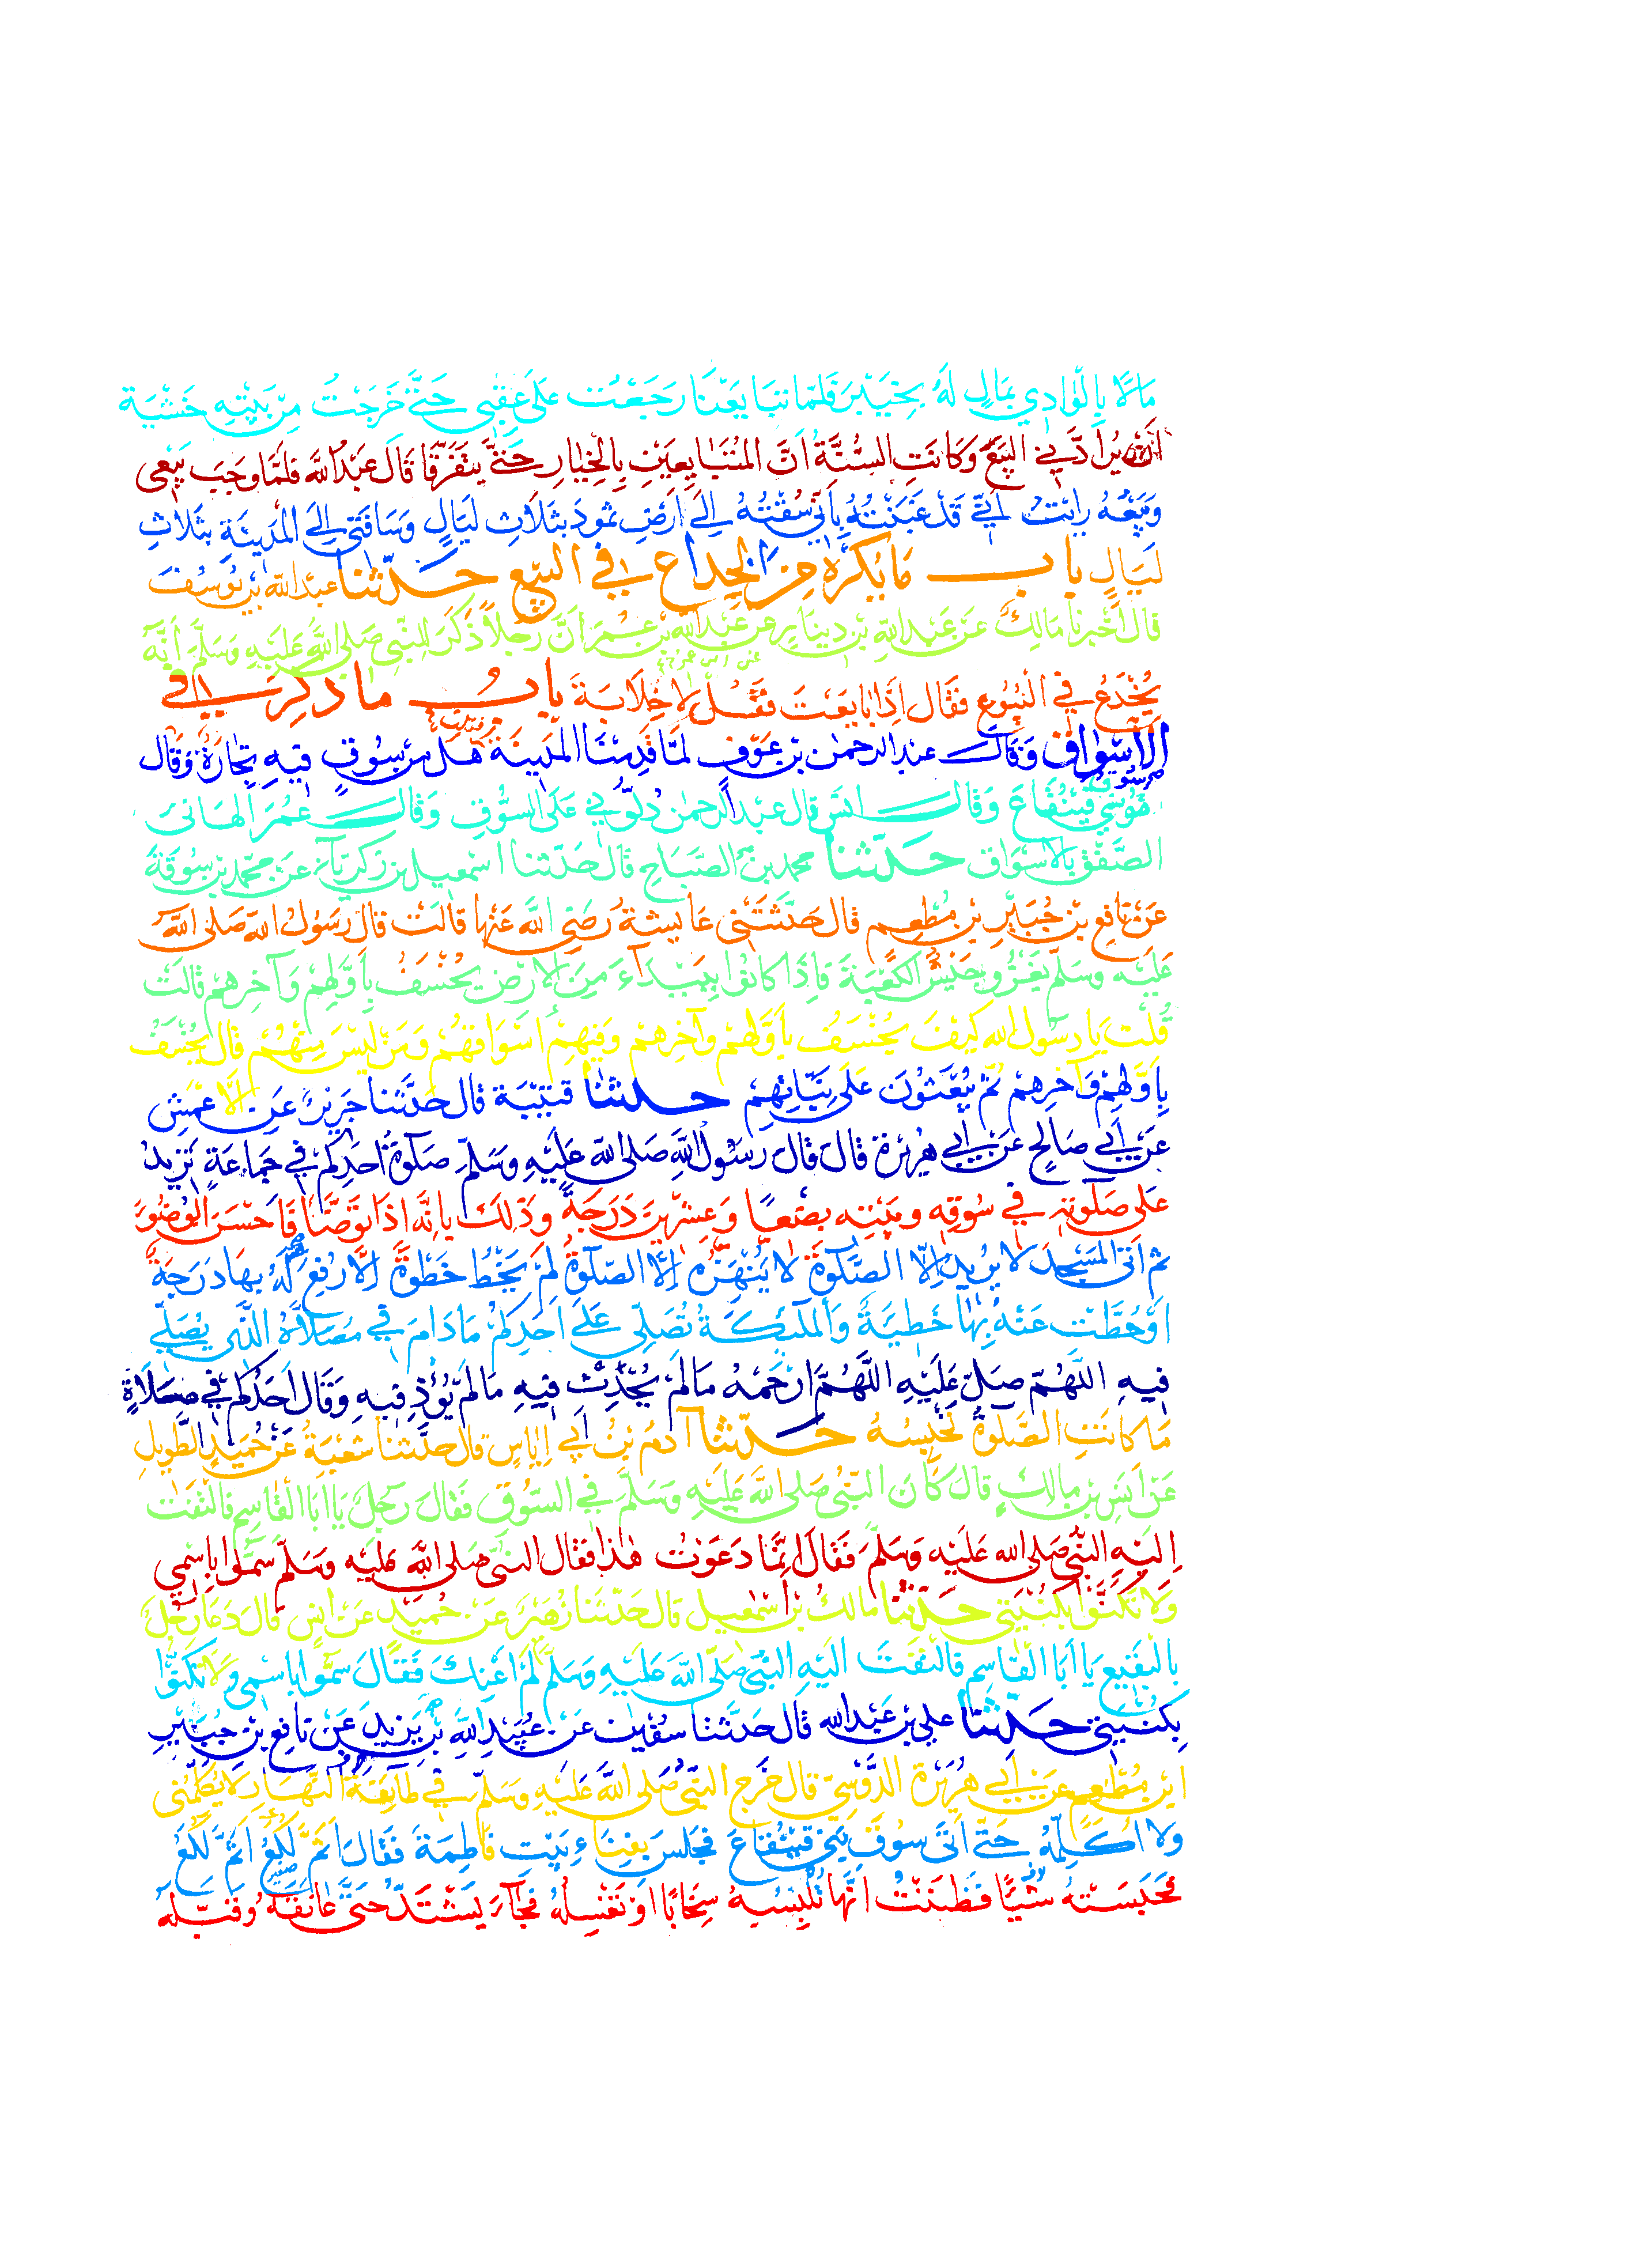 مَالًا بِالْوَادِي بِمَالٍ لَهُ بِخَيْبَرَ فَلَمَّا تَبَايَعْنَا رَجَعْتُ عَلَى عَقِبِي حَتَّى خَرَجْتُ مِنْ بَيْتِهِ خَشْيَةَ
أَنْ يُرَادَّنِي الْبَيْعَ وَكَانَتِ السُّنَّةُ أَنَّ الْمُتَبَايِعَيْنِ بِالْخِيَارِ حَتَّى يَتَفَرَّقَا قَالَ عَبْدُ اللَّهِ فَلَمَّا وَجَبَ بَيْعِي
وَبَيْعُهُ رَأَيْتُ أَنِّي قَدْ غَبَنْتُهُ بِأَنِّي سُقْتُهُ إِلَى أَرْضِ ثَمُودَ بِثَلَاثِ لَيَالٍ وَسَاقَنِي إِلَى الْمَدِينَةِ بِثَلَاثِ
لَيَالٍ بَابُ مَا يُكْرَهُ مِنَ الْخِدَاعِ فِي الْبَيْعِ حَدَّثَنَا عَبْدُ اللَّهِ بْنُ يُوسُفَ
قَالَ أَخْبَرَنَا مَالِكٌ عَنْ عَبْدِ اللَّهِ بْنِ دِينَارٍ عَنْ عَبْدِ اللَّهِ بْنِ عُمَرَ أَنَّ رَجُلًا ذَكَرَ لِلنَّبِيِّ صَلَّى اللَّهُ عَلَيْهِ وَسَلَّمَ أَنَّهُ
يُخْدَعُ فِي الْبُيُوعِ فَقَالَ إِذَا بَايَعْتَ فَقُلْ لَا خِلَابَةَ بَابُ مَا ذُكِرَ فِي
الْأَسْوَاقِ وَقَالَ عَبْدُ الرَّحْمٰنِ بْنُ عَوْفٍ لَمَّا قَدِمْنَا الْمَدِينَةَ هَلْ مِنْ سُوقٍ فِيهِ تِجَارَةٌ وَقَالَ
سُوقُ قَيْنُقَاعَ وَقَالَ أَنَسٌ قَالَ عَبْدُ الرَّحْمٰنِ دُلُّونِي عَلَى السُّوقِ وَقَالَ عُمَرُ أَلْهَانِي
الصَّفْقُ بِالْأَسْوَاقِ حَدَّثَنَا مُحَمَّدُ بْنُ الصَّبَّاحِ قَالَ حَدَّثَنَا إِسْمٰعِيلُ بْنُ زَكَرِيَّاءَ عَنْ مُحَمَّدِ بْنِ سُوقَةَ
عَنْ نَافِعِ بْنِ جُبَيْرِ بْنِ مُطْعِمٍ قَالَ حَدَّثَتْنِي عَائِشَةُ رَضِيَ اللَّهُ عَنْهَا قَالَتْ قَالَ رَسُولُ اللَّهِ صَلَّى اللَّهُ
عَلَيْهِ وَسَلَّمَ يَغْزُو جَيْشٌ الْكَعْبَةَ فَإِذَا كَانُوا بِبَيْدَاءَ مِنَ الْأَرْضِ يُخْسَفُ بِأَوَّلِهِمْ وَآخِرِهِمْ قَالَتْ
قُلْتُ يَا رَسُولَ اللَّهِ كَيْفَ يُخْسَفُ بِأَوَّلِهِمْ وَآخِرِهِمْ وَفِيهِمْ أَسْوَاقُهُمْ وَمَنْ لَيْسَ مِنْهُمْ قَالَ يُخْسَفُ
بِأَوَّلِهِمْ وَآخِرِهِمْ ثُمَّ يُبْعَثُونَ عَلَى نِيَّاتِهِمْ حَدَّثَنَا قُتَيْبَةُ قَالَ حَدَّثَنَا جَرِيرٌ عَنِ الْأَعْمَشِ
عَنْ أَبِي صَالِحٍ عَنْ أَبِي هُرَيْرَةَ قَالَ قَالَ رَسُولُ اللَّهِ صَلَّى اللَّهُ عَلَيْهِ وَسَلَّمَ صَلٰوةُ أَحَدِكُمْ فِي جَمَاعَةٍ تَزِيدُ
عَلَى صَلٰوتِهِ فِي سُوقِهِ وَبَيْتِهِ بِضْعًا وَعِشْرِينَ دَرَجَةً وَذٰلِكَ بِأَنَّهُ إِذَا تَوَضَّأَ فَأَحْسَنَ الْوُضُوءَ
ثُمَّ أَتَى الْمَسْجِدَ لَا يُرِيدُ إِلَّا الصَّلٰوةَ لَا يَنْهَزُهُ إِلَّا الصَّلٰوةُ لَمْ يَخْطُ خَطْوَةً إِلَّا رُفِعَ لَهُ بِهَا دَرَجَةً
أَوْ حُطَّتْ عَنْهُ بِهَا خَطِيئَةٌ وَالْمَلٰئِكَةُ تُصَلِّي عَلَى أَحَدِكُمْ مَا دَامَ فِي مُصَلَّاهُ الَّذِي يُصَلِّي
فِيهِ اللَّهُمَّ صَلِّ عَلَيْهِ اللَّهُمَّ ارْحَمْهُ مَا لَمْ يُحْدِثْ فِيهِ مَا لَمْ يُؤْذِ فِيهِ وَقَالَ أَحَدُكُمْ فِي صَلَاةٍ
مَا كَانَتِ الصَّلٰوةُ تَحْبِسُهُ حَدَّثَنَا آدَمُ بْنُ أَبِي إِيَاسٍ قَالَ حَدَّثَنَا شُعْبَةُ عَنْ حُمَيْدٍ الطَّوِيلِ
عَنْ أَنَسِ بْنِ مَالِكٍ قَالَ كَانَ النَّبِيُّ صَلَّى اللَّهُ عَلَيْهِ وَسَلَّمَ فِي السُّوقِ فَقَالَ رَجُلٌ يَا أَبَا الْقَاسِمِ فَالْتَفَتَ
إِلَيْهِ النَّبِيُّ صَلَّى اللَّهُ عَلَيْهِ وَسَلَّمَ فَقَالَ إِنَّمَا دَعَوْتُ هٰذَا فَقَالَ النَّبِيُّ صَلَّى اللَّهُ عَلَيْهِ وَسَلَّمَ سَمُّوا بِاسْمِي
وَلَا تَكَنَّوْا بِكُنْيَتِي حَدَّثَنَا مَالِكُ بْنُ إِسْمٰعِيلَ قَالَ حَدَّثَنَا زُهَيْرٌ عَنْ حُمَيْدٍ عَنْ أَنَسٍ قَالَ دَعَا رَجُلٌ
بِالْبَقِيعِ يَا أَبَا الْقَاسِمِ فَالْتَفَتَ إِلَيْهِ النَّبِيُّ صَلَّى اللَّهُ عَلَيْهِ وَسَلَّمَ لَمْ أَعْنِكَ فَقَالَ سَمُّوا بِاسْمِي وَلَا تَكَنَّوْا
بِكُنْيَتِي حَدَّثَنَا عَلِيُّ بْنُ عَبْدِ اللَّهِ قَالَ حَدَّثَنَا سُفْيٰنُ عَنْ عُبَيْدِ اللَّهِ بْنِ يَزِيدَ عَنْ نَافِعِ بْنِ جُبَيْرِ
ابْنِ مُطْعِمٍ عَنْ أَبِي هُرَيْرَةَ الدَّوْسِيِّ قَالَ خَرَجَ النَّبِيُّ صَلَّى اللَّهُ عَلَيْهِ وَسَلَّمَ فِي طَائِفَةِ النَّهَارِ لَا يُكَلِّمُنِي
وَلَا أُكَلِّمُهُ حَتَّى أَتَى سُوقَ بَنِي قَيْنُقَاعَ فَجَلَسَ بِفِنَاءِ بَيْتِ فَاطِمَةَ فَقَالَ أَثَمَّ لُكَعُ أَثَمَّ لُكَعُ
فَحَبَسَتْهُ شَيْئًا فَظَنَنْتُ أَنَّهَا تُلْبِسُهُ سِخَابًا أَوْ تُغَسِّلُهُ فَجَاءَ يَشْتَدُّ حَتَّى عَانَقَهُ وَقَبَّلَهُ